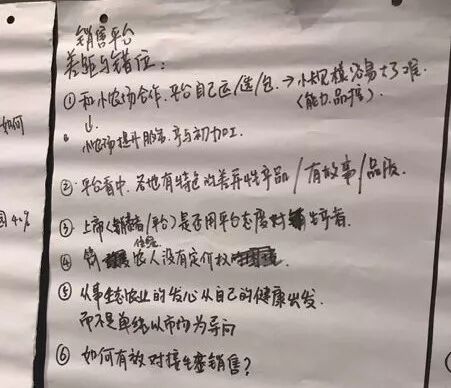 销售平台
差距与错位:
① 和小农场合作.平台自己运/选/包.→小规模容易大了难.
(能力.品控).
↓
小农场提升服务.参与初加工.
② 平台看中.各地有特色的差异性产品/有故事/品质
③ 上帝(销售商/平台)是否用平台态度对生产者.
④ 农人没有定价权
⑤ 从事生态农业的发心从自己的健康出发.
而不是单纯以市场为导向
⑥ 如何有效对接生产销售?
如何
40%